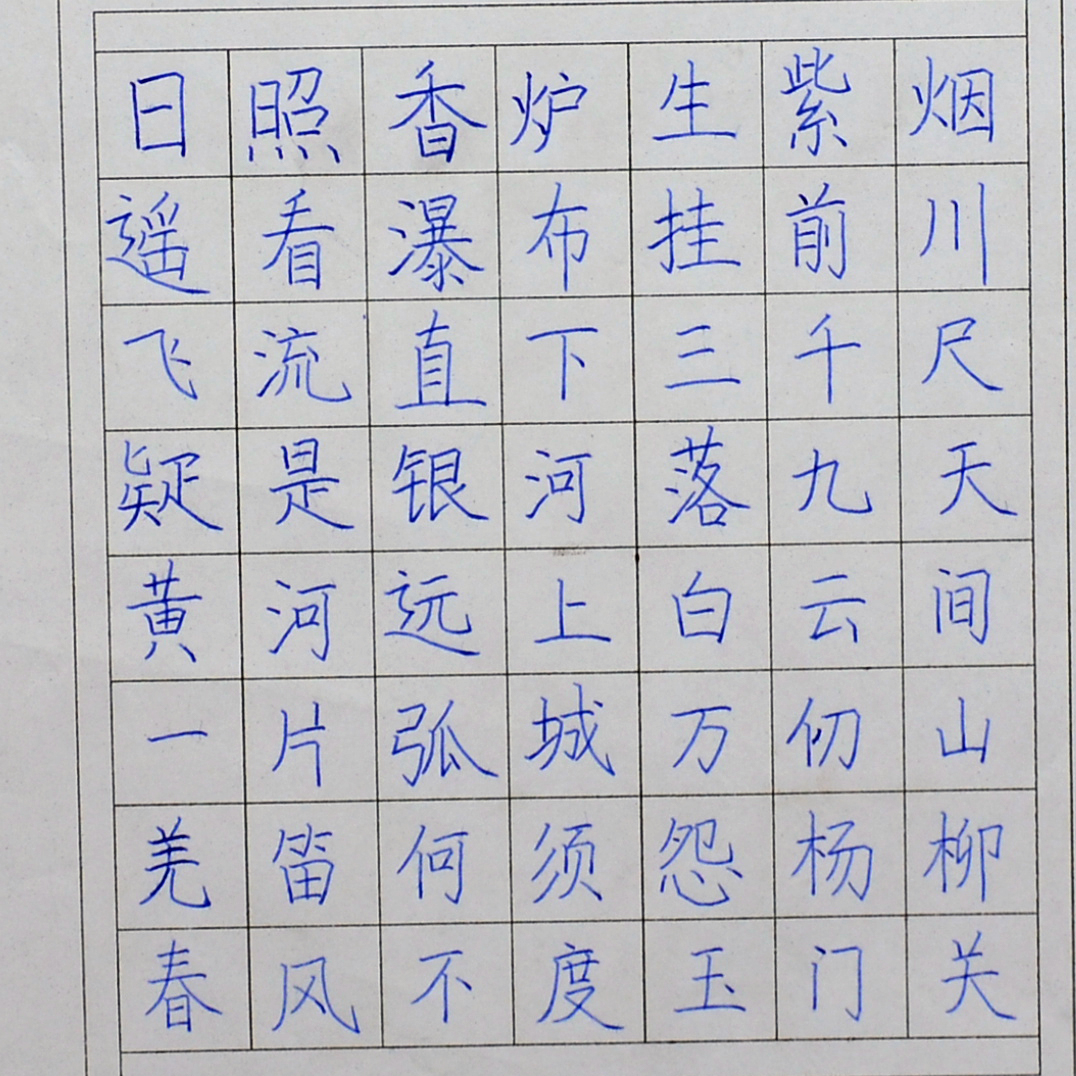 日照香炉生紫烟
遥看瀑布挂前川
飞流直下三千尺
疑是银河落九天
黄河远上白云间
一片弧城万仞山
羌笛何须怨杨柳
春风不度玉门关